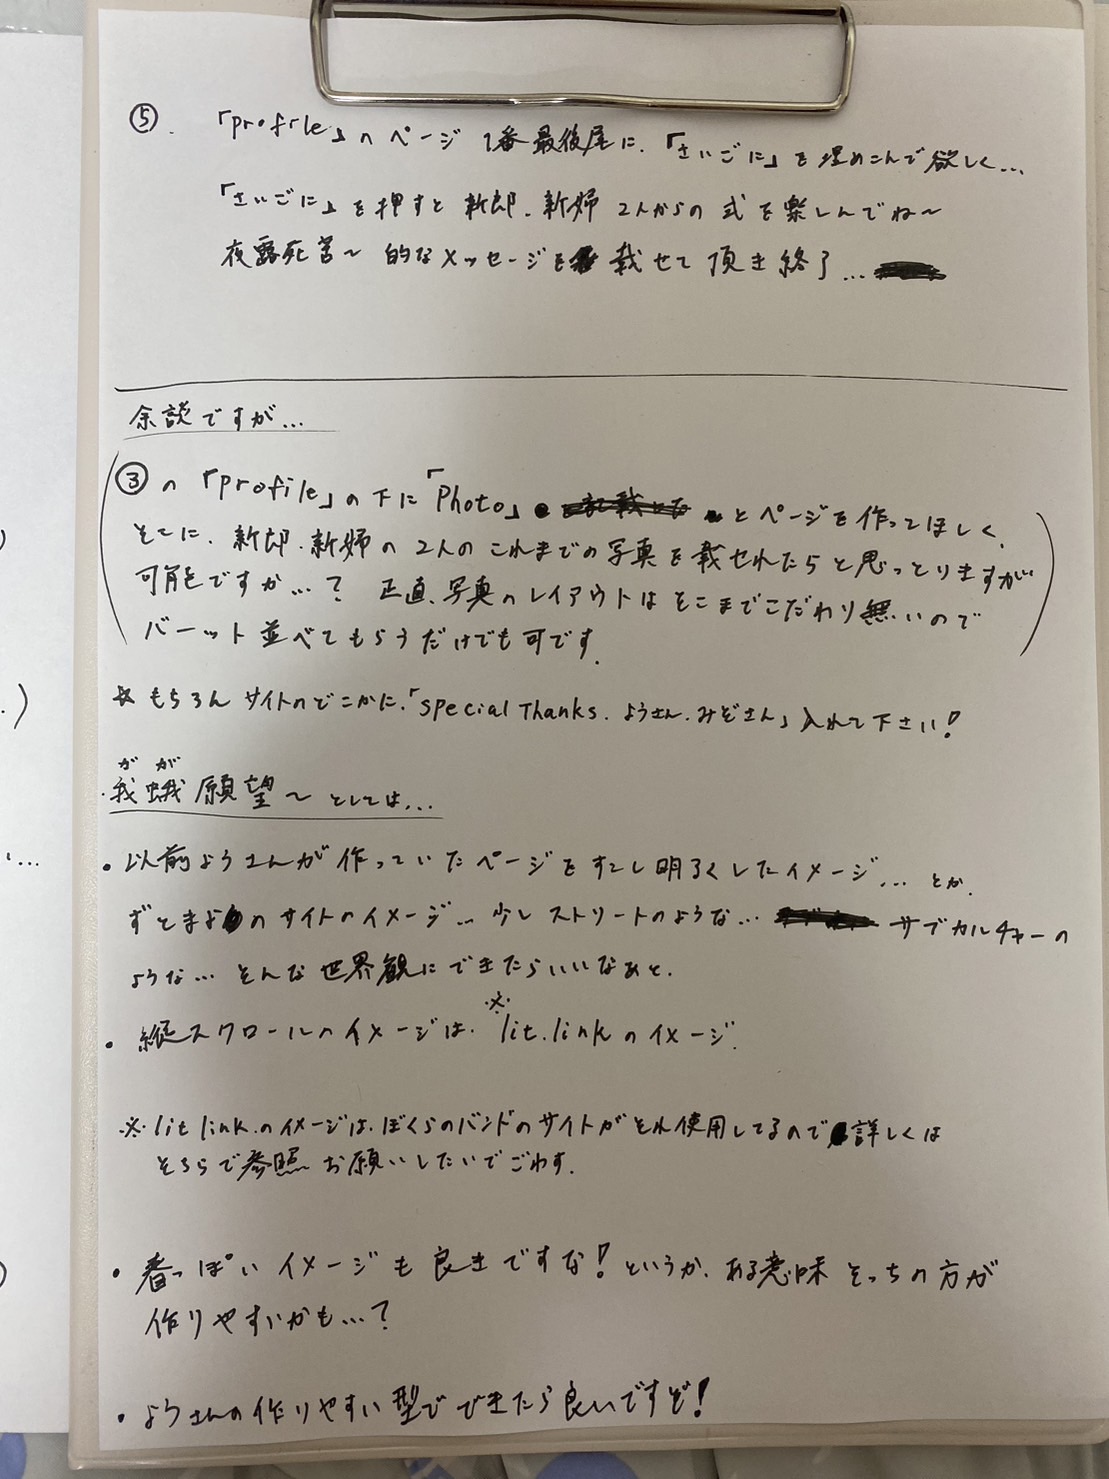 ⑤. 「profile」のページ1番最後尾に、「さいごに」を埋めこんで欲しく...
「さいごに」を押すと新郎、新婦2人からの式を楽しんでね〜
夜露死苦〜的なメッセージを載せて頂き終了...
余談ですが...
③の「profile」の下に「Photo」とページを作ってほしく、
そこに、新郎、新婦の2人のこれまでの写真を載せれたらと思っとりますが
可能ですか...? 正直、写真のレイアウトはそこまでこだわり無いので
バーット並べてもらうだけでも可です。
★もちろんサイトのどこかに、「special Thanks. ようさん、みぞさん」入れて下さい!
がが
・我蛾願望〜としては...
・以前ようさんが作っていたページをすこし明るくしたイメージ... とか、
ずとまよのサイトのイメージ... 少しストリートのような... サブカルチャーの
ような... そんな世界観にできたらいいなぁと.
・縦スクロールのイメージは、※lit.linkのイメージ.
※lit linkのイメージは、ぼくらのバンドのサイトがそれ使用してるので詳しくは
そちらで参照お願いしたいでごわす.
・春っぽいイメージも良きですな! というか、ある意味そっちの方が
作りやすいかも...?
・ようさんの作りやすい型でできたら良いですぞ!